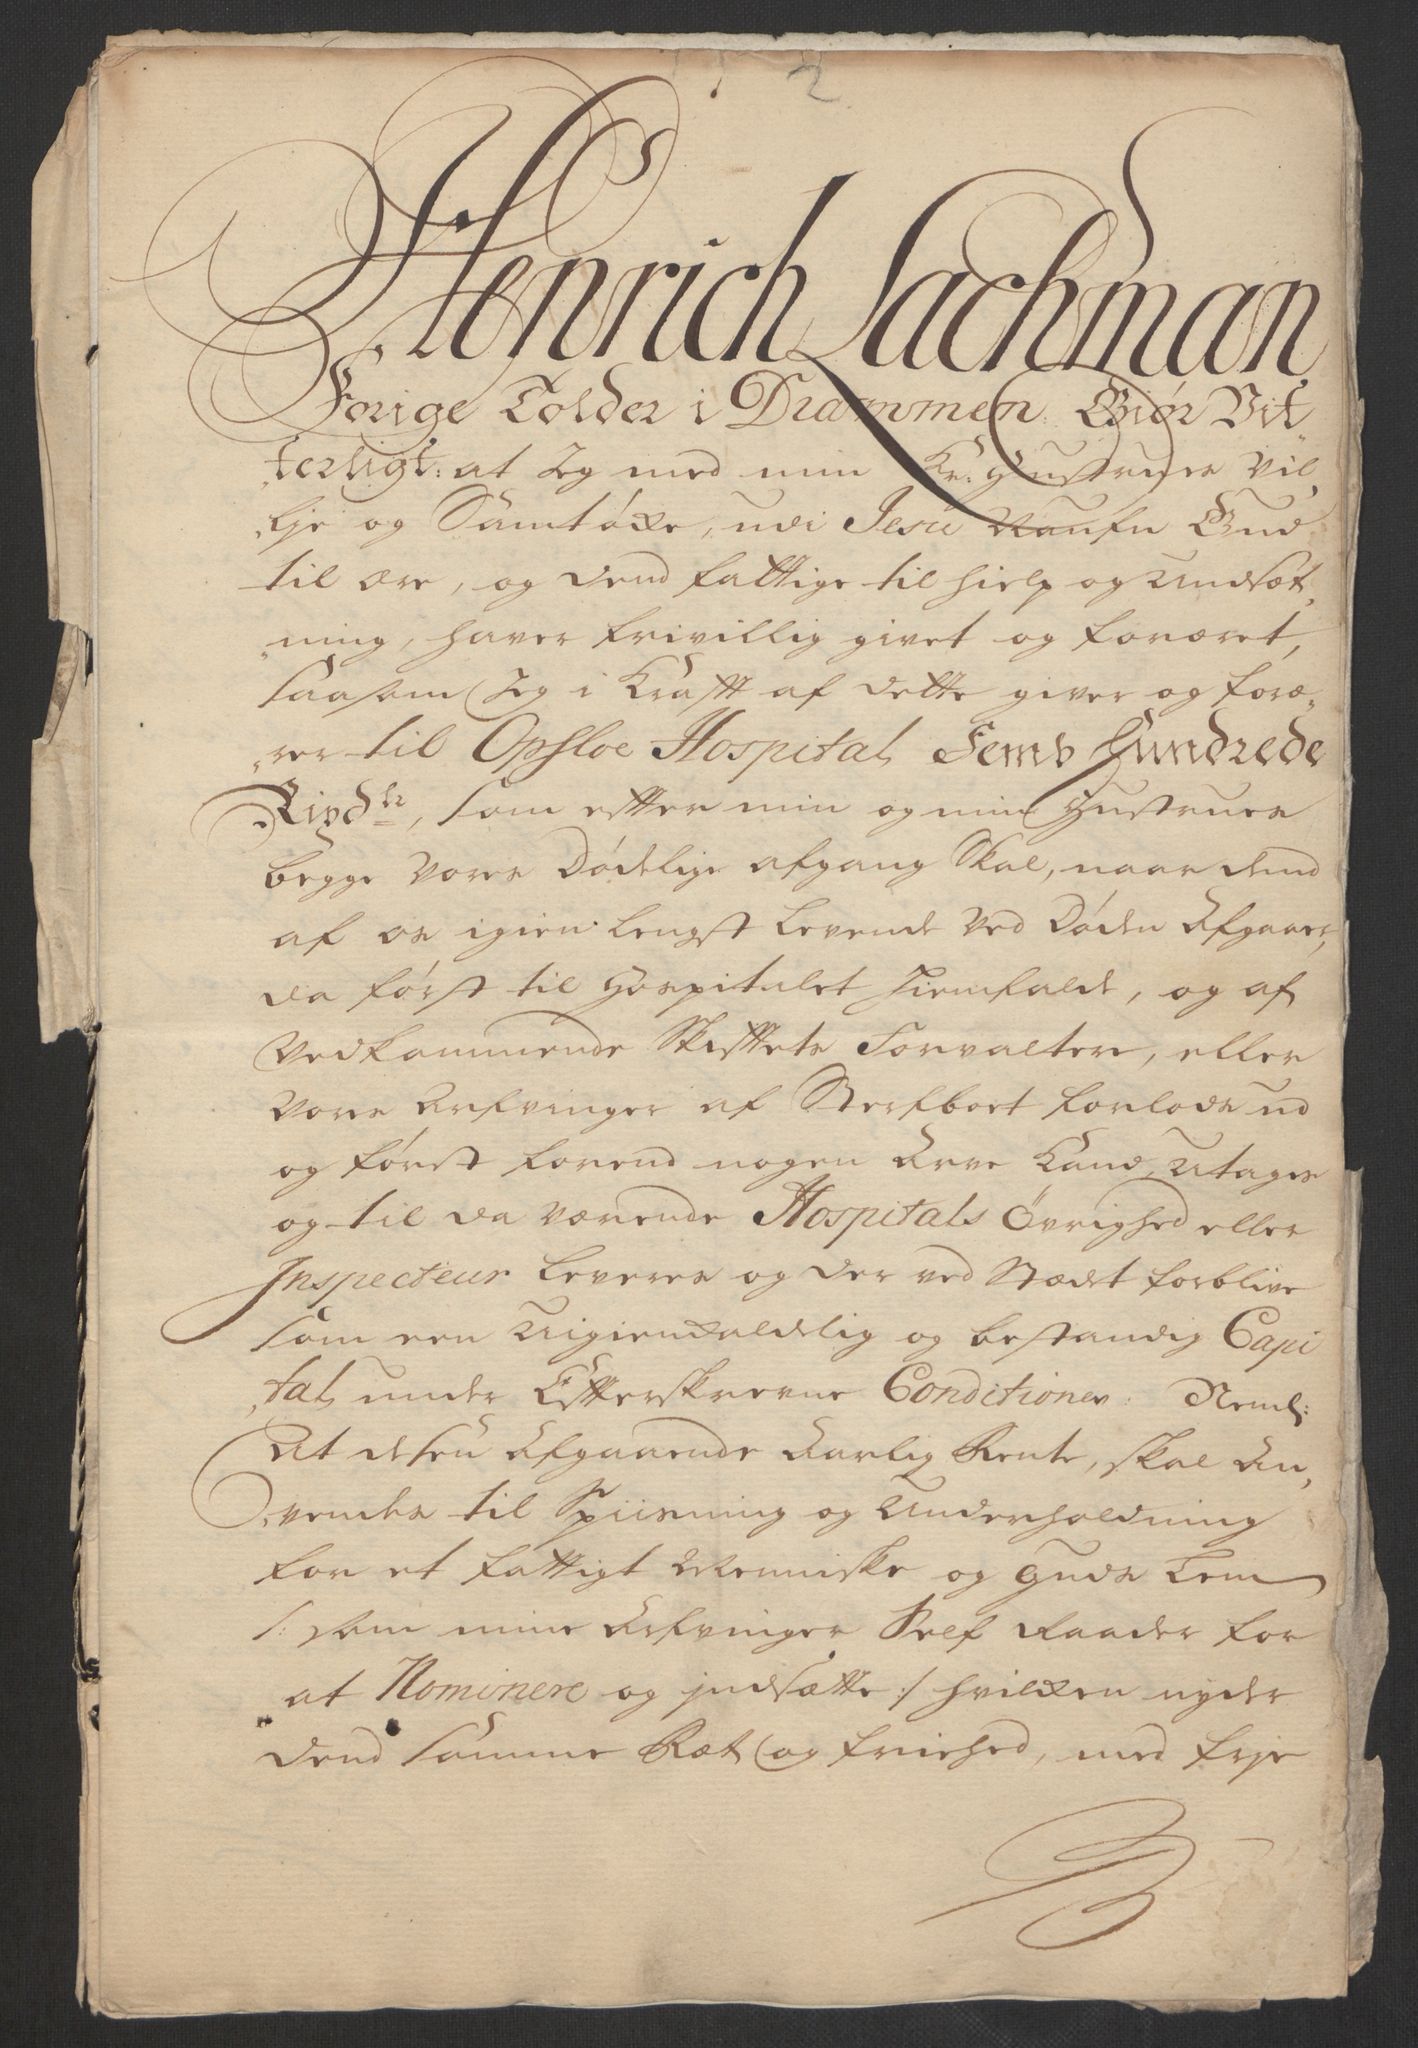 2
Henrich Lachman
Forige Tolder i Drammen. Giør Vit
„terligt: at Jeg med min Kr: Hustrues Vil,
„lje og Samtøcke, udi Jesu Naufn Gud
til ære, og dend fattige til hielp og Undsæt,
„ning, haver frivillig givet og foræret,
saasom Jeg i Krafft af dette giver og foræ,
„rer til Opsloe Hospital Femb Hundrede
Rixdlr, som effter min og min Hustrues
begge Vores Dødelige afgang Skal, naar dend
af os igien lengst Levende Ved Døden Afgaaer,
da først til Hospitalet hiemfalde, og af
Vedkommende Skifftets Forvaltere, eller
Vores Arfvinger af Sterfboet forlods ud
og først forend nogen Arve Kand Utages
og til da værende Hospitals Øvrighed eller
Inspecteur Leveres og der ved Stædet forblive
som een Uigienkaldelig og bestandig Capi
„tal under Effterskrevne Conditioner. Neml:
At desen Afgaaende Aarlig Rente, skal An,
„vendes til Spiisning og Underholdning
for et fattigt Menniske og Guds Lem
/: som mine Arfvinger Self Raader for
at Nominere og indsætte :/ hvilcken nyder
dend samme Ræt og friehed, med frje